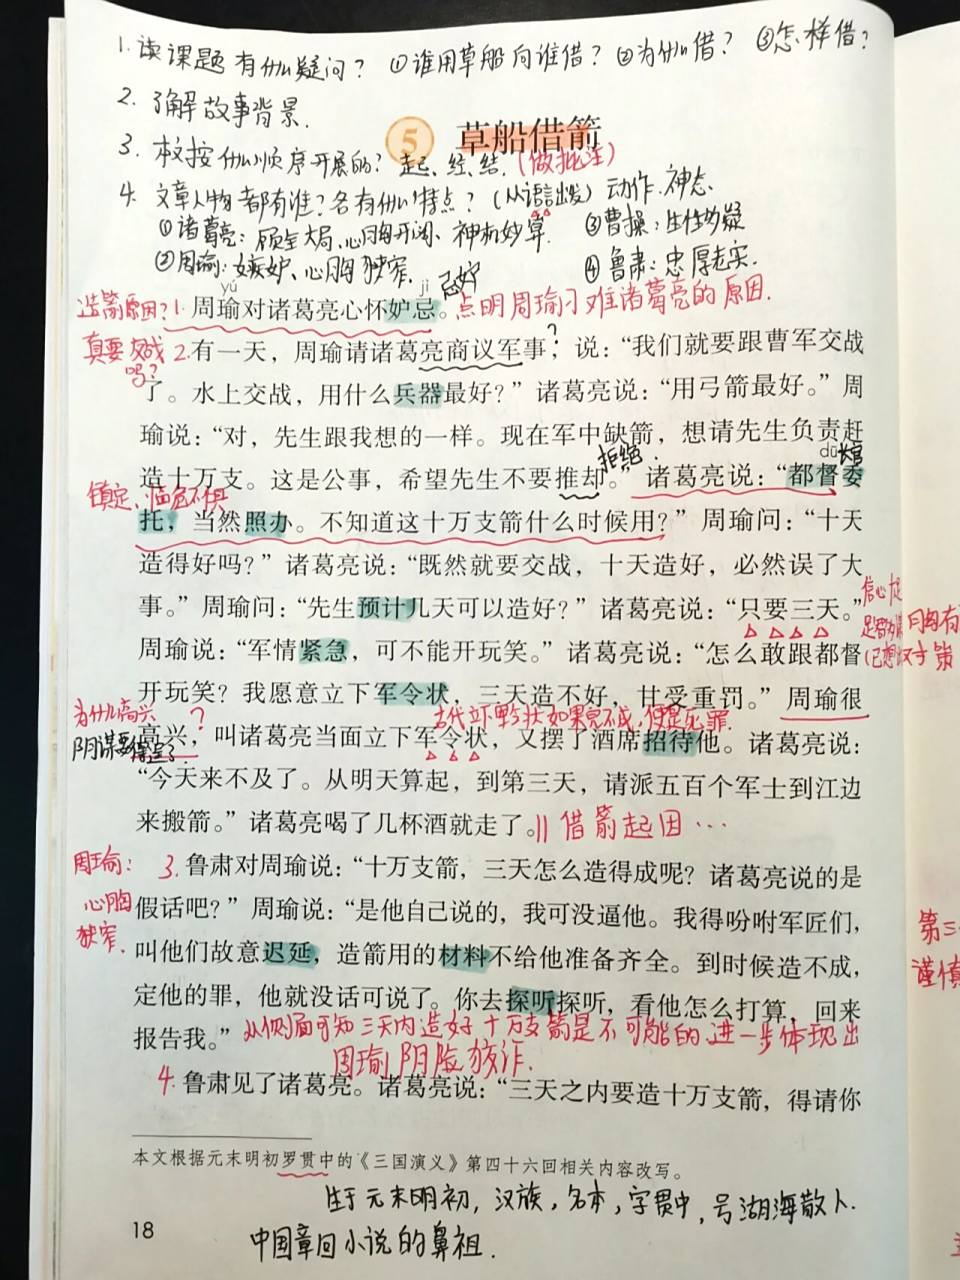 1. 读课题有什么疑问？ ①谁用草船向谁借？ ②为什么借？ ③怎样借？
2. 了解故事背景.
5 草船借箭
3. 本文按什么顺序开展的？ 起、经、结. (做批注)
4. 文章人物都有谁？各有什么特点？ (从语言出发) 动作. 神态.
①诸葛亮: 顾全大局、心胸开阔、神机妙算. ③曹操: 生性多疑
②周瑜: 嫉妒、心胸狭窄. ④鲁肃: 忠厚老实.
yú jì 忌妒
造箭原因？ 1. 周瑜对诸葛亮心怀妒忌。 点明周瑜刁难诸葛亮的原因.
真要交战吗？ 2. 有一天，周瑜请诸葛亮商议军事，说：“我们就要跟曹军交战
了。水上交战，用什么兵器最好？”诸葛亮说：“用弓箭最好。”周
瑜说：“对，先生跟我想的一样。现在军中缺箭，想请先生负责赶
拒绝. dū 长官
造十万支。这是公事，希望先生不要推却。”诸葛亮说：“都督委
镇定、临危不惧
托，当然照办。不知道这十万支箭什么时候用？”周瑜问：“十天
造得好吗？”诸葛亮说：“既然就要交战，十天造好，必然误了大
事。”周瑜问：“先生预计几天可以造好？”诸葛亮说：“只要三天。”
信心
胸有
周瑜说：“军情紧急，可不能开玩笑。”诸葛亮说：“怎么敢跟都督
对策
开玩笑？我愿意立下军令状，三天造不好，甘受重罚。”周瑜很
为什么高兴？ 古代立下军令状如果完不成, 便是死罪.
阴谋要得逞了.
高兴，叫诸葛亮当面立下军令状，又摆了酒席招待他。诸葛亮说：
“今天来不及了。从明天算起，到第三天，请派五百个军士到江边
来搬箭。”诸葛亮喝了几杯酒就走了。 || 借箭起因…
周瑜: 3. 鲁肃对周瑜说：“十万支箭，三天怎么造得成呢？诸葛亮说的是
心胸
假话吧？”周瑜说：“是他自己说的，我可没逼他。我得吩咐军匠们，
狭窄.
第三
叫他们故意迟延，造箭用的材料不给他准备齐全。到时候造不成，
谨慎
定他的罪，他就没话可说了。你去探听探听，看他怎么打算，回来
报告我。” 从侧面可知三天内造好十万支箭是不可能的. 进一步体现出
周瑜阴险狡诈.
4. 鲁肃见了诸葛亮。诸葛亮说：“三天之内要造十万支箭，得请你
本文根据元末明初罗贯中的《三国演义》第四十六回相关内容改写。
生于元末明初, 汉族, 名本, 字贯中, 号湖海散人.
18
中国章回小说的鼻祖.